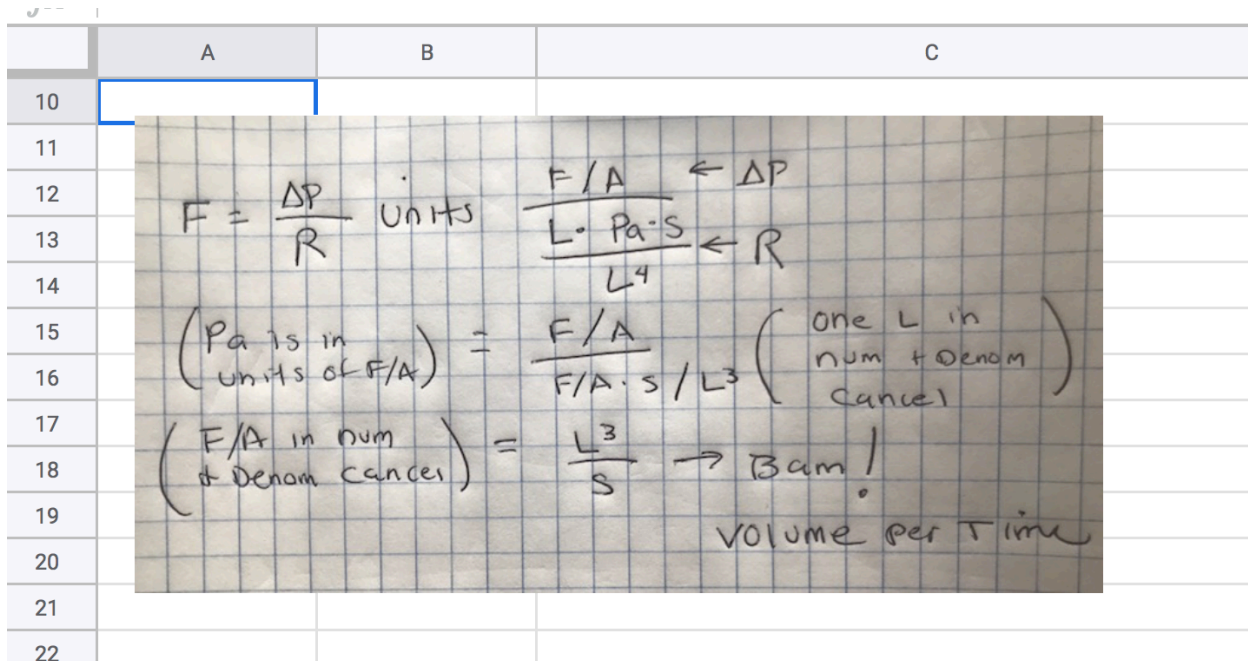 A B C
10
11
12
13
14
15
16
17
18
19
20
21
22
F = ΔP / R units F/A ← ΔP
L · Pa·S / L⁴ ← R
(Pa is in units of F/A) = F/A / F/A · S / L³ (one L in num + Denom cancel)
(F/A in num & Denom cancel) = L³ / S → Bam!
Volume per Time